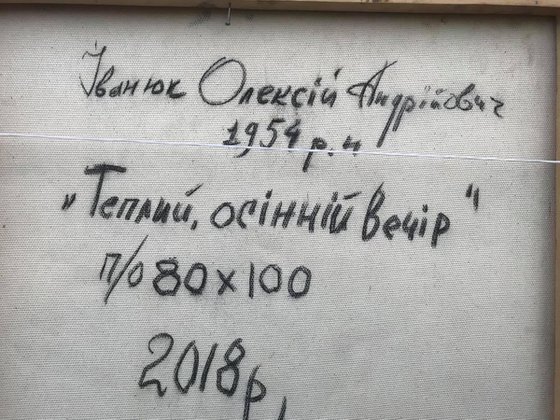 Іванюк Олексій Андрійович
1954 р.н
"Теплий, осінній вечір"
п/о 80х100
2018р,